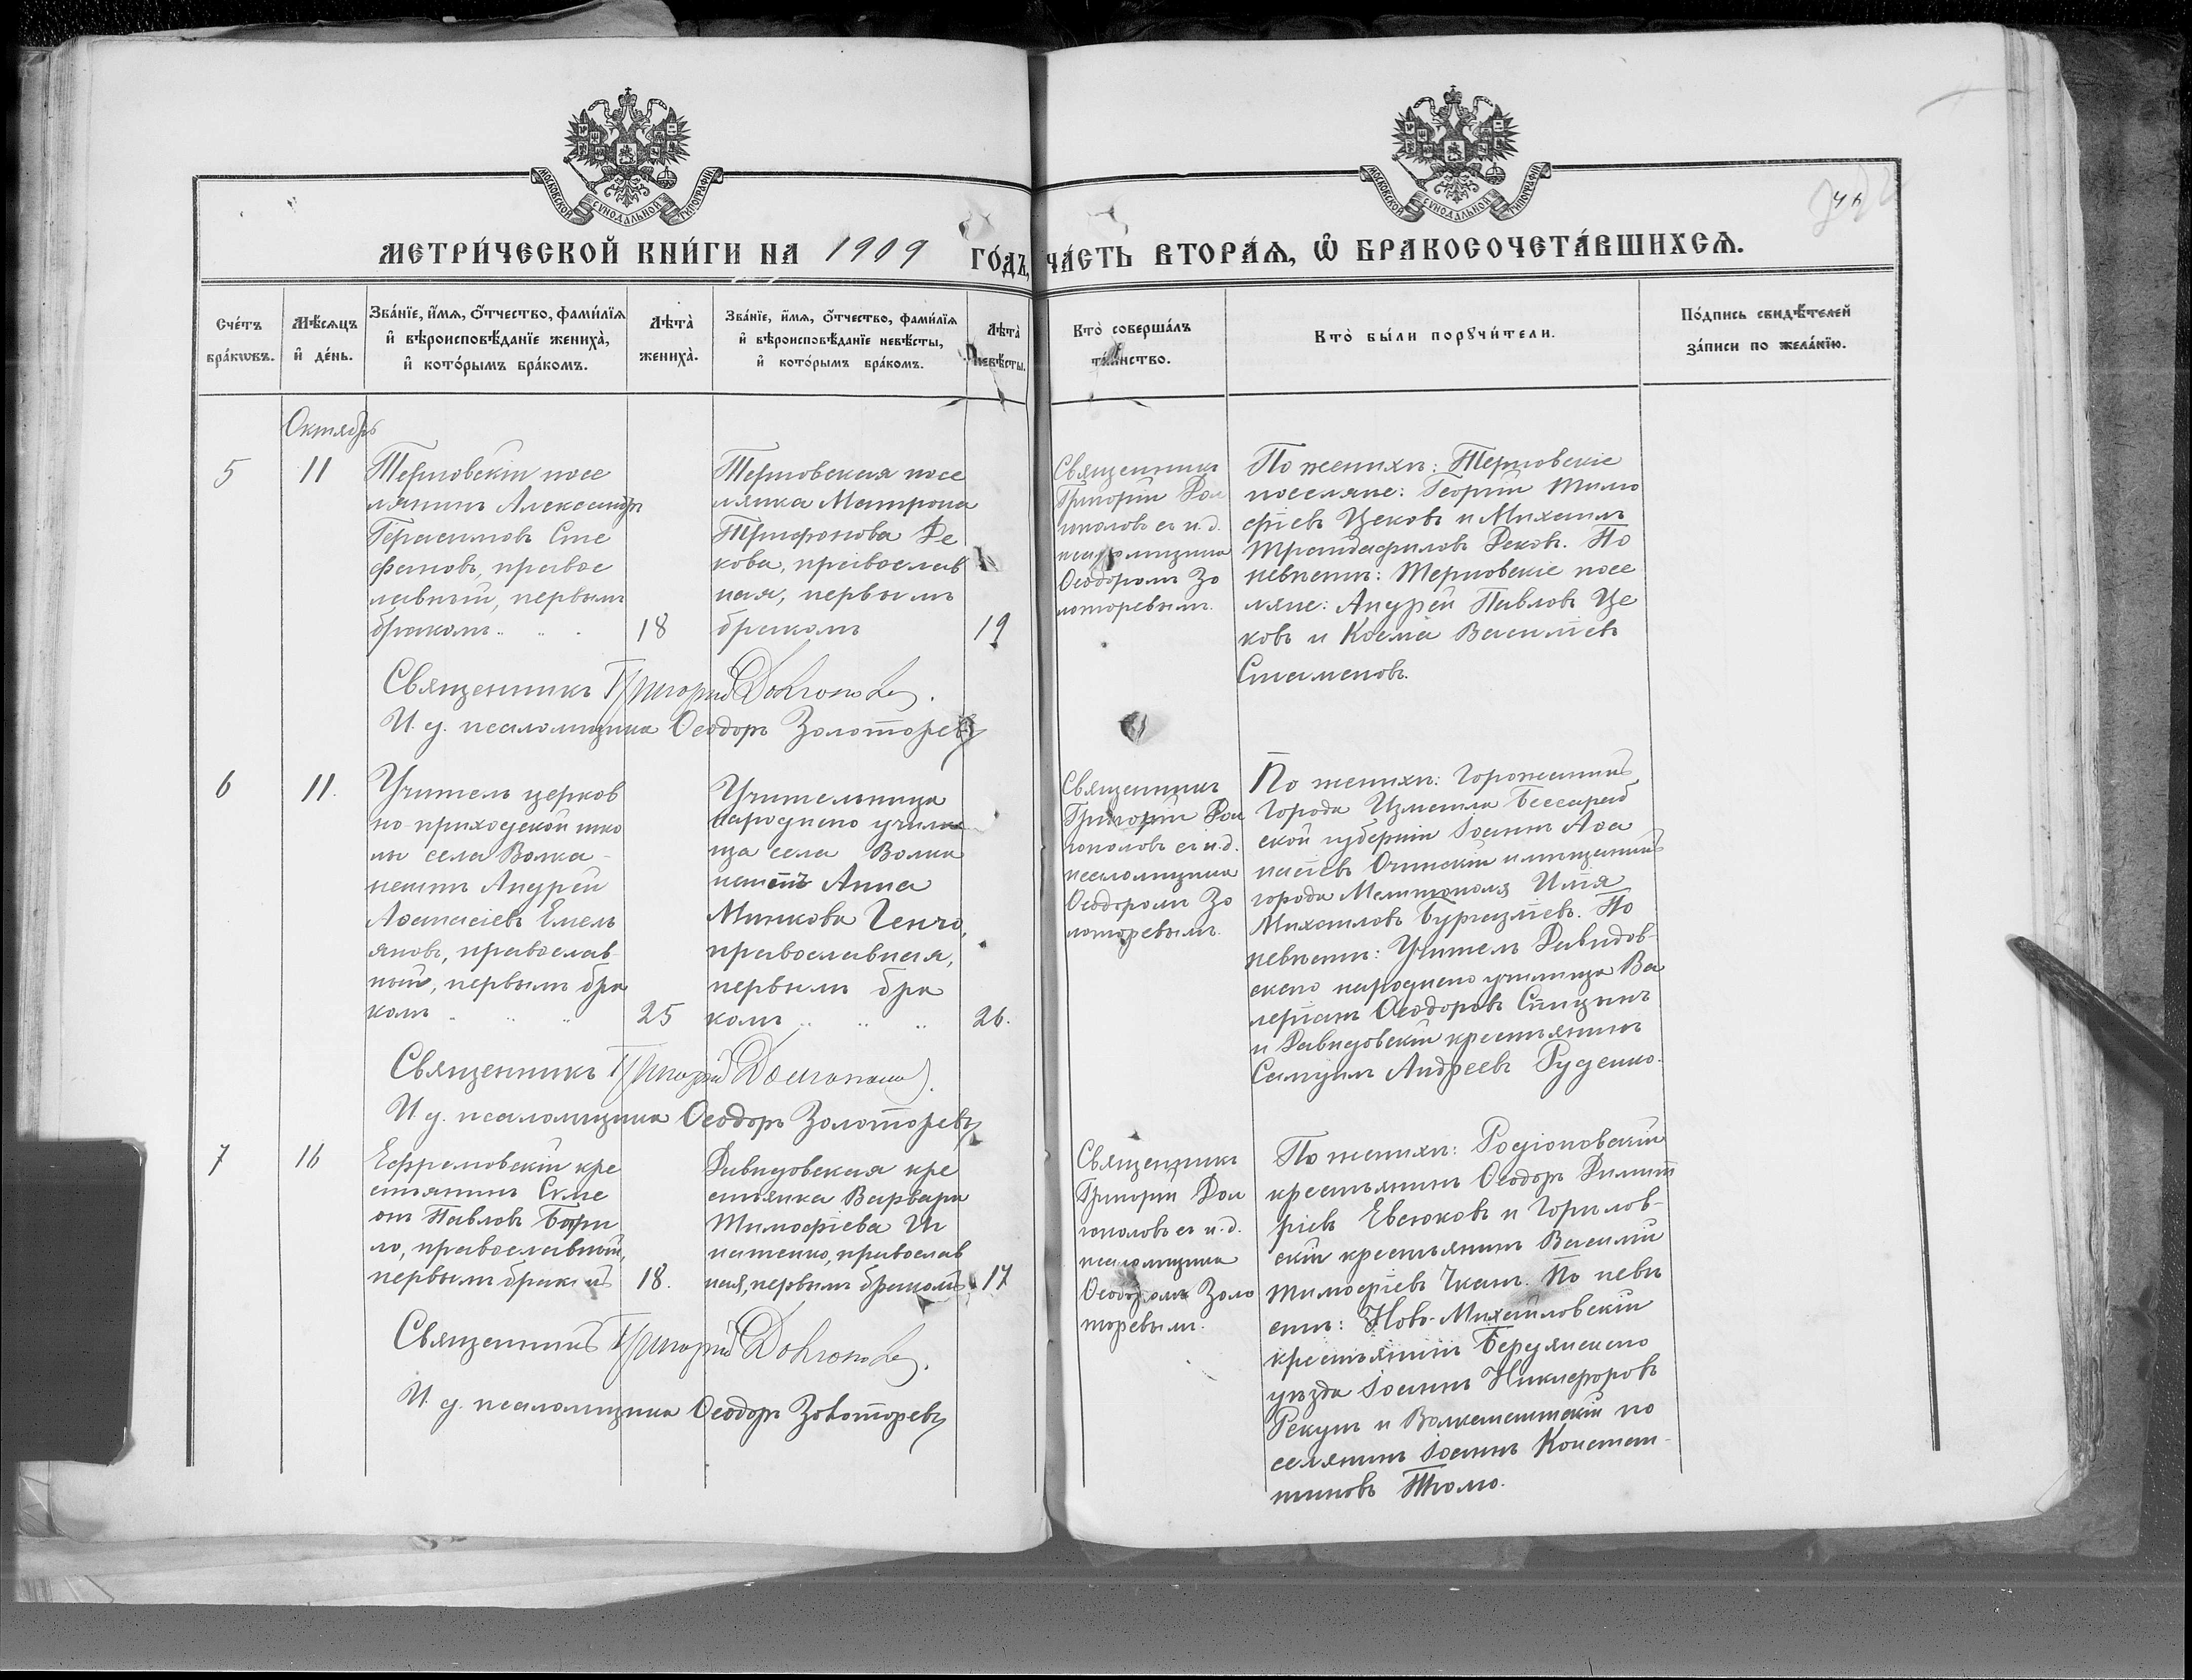 МОСКОВСКОЙ СѴНОДАЛЬНОЙ ТИПОГРАФІИ
МОСКОВСКОЙ СѴНОДАЛЬНОЙ ТИПОГРАФІИ
МЕТРИ́ЧЕСКОЙ КНИ́ГИ НА 1909 ГО́ДЪ, ЧА́СТЬ ВТОРА́Ѧ, Ѡ҆ БРАКОСОЧЕТА́ВШИХСѦ.
Сче́тъ
бра́кѡвъ.
Мѣ́сяцъ
и҆ де́нь.
Зва́нїе, и҆́мѧ, ѻ҆́тчество, фами́лїѧ
и҆ вѣроисповѣ́данїе жениха̀,
и҆ кото́рымъ бра́комъ.
Лѣта̀
жениха̀.
Зва́нїе, и҆́мѧ, ѻ҆́тчество, фами́лїѧ
и҆ вѣроисповѣ́данїе невѣ́сты,
и҆ кото́рымъ бра́комъ.
Лѣта̀
невѣ́сты.
Кто̀ соверша́лъ
та́инство.
Кто̀ бы́ли порꙋчи́тели.
По́дпись свидѣ́телей
за́писи по жела́нїю.
Октябрь
5
11
Терновскій посе
лянинъ Александръ
Герасимовъ Сте
фановъ, правос
лавный, первымъ
бракомъ
18
Терновская посе
лянка Матрона
Трифонова Де
кова, православ
ная, первымъ
бракомъ
19
Священникъ
Григорій Дол
гополовъ съ и. д.
псаломщика
Ѳеодоромъ Зо
лоторевымъ.
По женихѣ: Терновскіе
поселяне: Георгій Тимо
фіевъ Цековъ и Михаилъ
Трандафиловъ Дековъ. По
невѣстѣ: Терновскіе посе
ляне: Андрей Павловъ Це
ковъ и Косма Василіевъ
Стаменовъ.
Священникъ Григорій Долгополовъ.
И. д. псаломщика Ѳеодоръ Золоторевъ
6
11.
Учитель церков
но-приходской шко
лы села Волка-
нешть Андрей
Аѳанасіевъ Емель
яновъ, православ-
ный, первымъ бра
комъ
25
Учительница
народнаго учили
ща села Волка
нештъ Анна
Минкова Генчо,
православная,
первымъ бра
комъ
26.
Священникъ
Григорій Дол
гополовъ съ и. д.
псаломщика
Ѳеодоромъ Зо
лоторевымъ.
По женихѣ: Горожанинъ
города Измаила Бессараб
ской губерніи Іоаннъ Аѳа
насіевъ и мѣщанинъ
города Мелитополя Илія
Михаиловъ Бургазліевъ. По
невѣстѣ: Учитель Давидов-
скаго народнаго училища Ва
леріанъ Ѳеодоровъ Спицынъ
и Давидовскій крестьянинъ
Самуилъ Андреевъ Руденко.
Священникъ Григорій Долгополовъ.
И. д. псаломщика Ѳеодоръ Золоторевъ
7
16
Ефремовскій кре
стьянинъ
Павловъ
православный,
первымъ бракомъ
18.
Давидовская кре
стьянка Варвара
Тимофіева Иг
натенко, православ
ная, первымъ бракомъ
17
Священникъ
Григорій Дол
гополовъ съ и. д.
псаломщика
Ѳеодоромъ Золо
торевымъ.
По женихѣ: Родіоновскій
крестьянинъ Ѳеодоръ Димит
ріевъ Евсюковъ и Горѣлов-
скій крестьянинъ Василій
Тимофіевъ Чканъ. По невѣ
стѣ: Ново-Михайловскій
крестьянинъ Бердянскаго
уѣзда Іоаннъ Никифоровъ
Рекунъ и Волканештскій по
селянинъ Іоаннъ Констан-
тиновъ
Священникъ Григорій Долгополовъ.
И. д. псаломщика Ѳеодоръ Золоторевъ